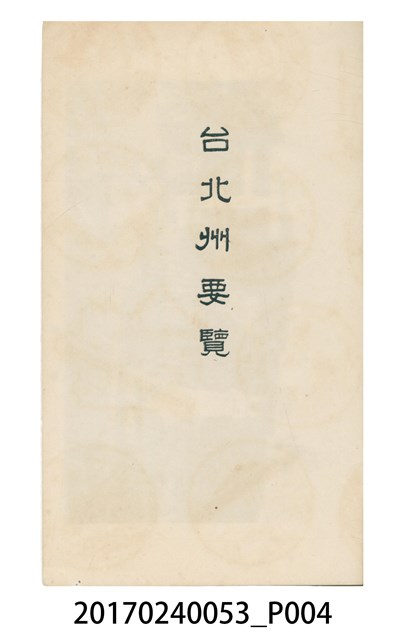 台北州要覽
20170240053_P004